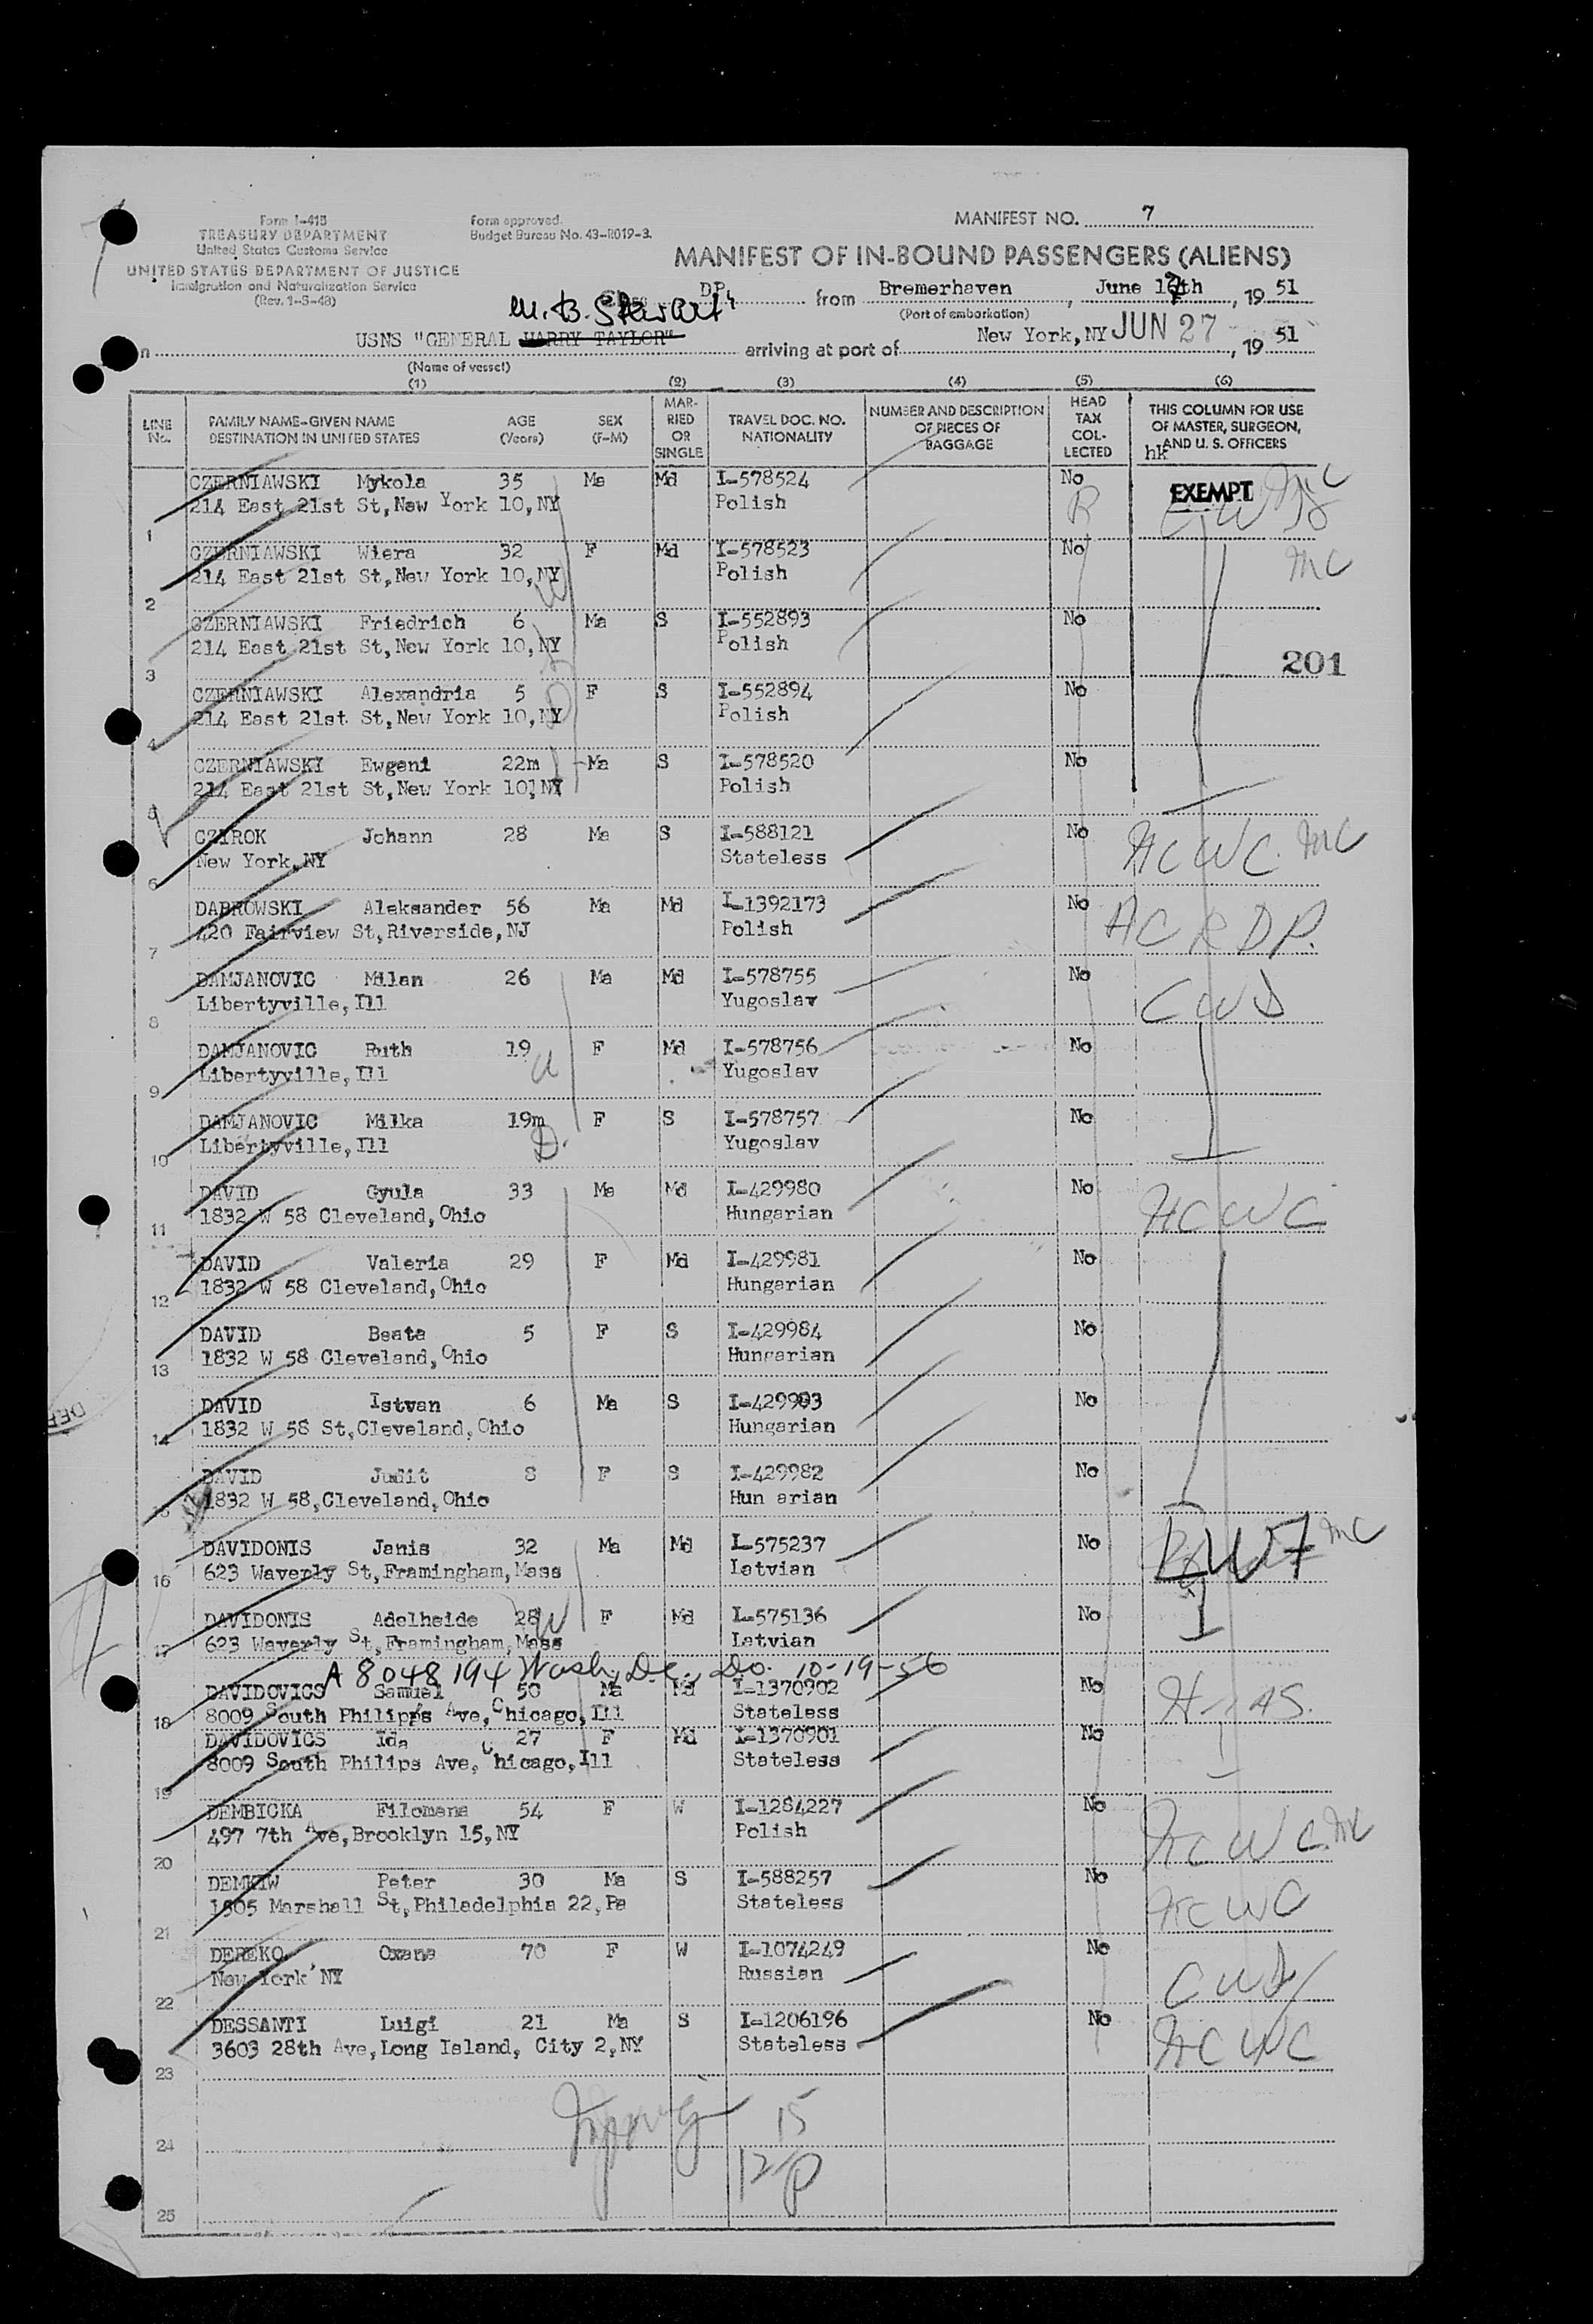 Form I-415
TREASURY DEPARTMENT
United States Customs Service
UNITED STATES DEPARTMENT OF JUSTICE
Immigration and Naturalization Service
(Rev. 1-3-48)
Form approved.
Budget Bureau No. 43-R019-3.
MANIFEST NO. 7
MANIFEST OF IN-BOUND PASSENGERS (ALIENS)
Class DP, from Bremerhaven, June 17th, 19 51
(Port of embarkation)
M. B. Stewart"
n USNS "GENERAL HARRY TAYLOR" arriving at port of New York, NY JUN 27, 19 51
(Name of vessel)
(1) (2) (3) (4) (5) (6)
LINE No.
FAMILY NAME-GIVEN NAME AGE SEX
DESTINATION IN UNITED STATES (Years) (F-M)
MARRIED OR SINGLE
TRAVEL DOC. NO. NATIONALITY
NUMBER AND DESCRIPTION OF PIECES OF BAGGAGE
HEAD TAX COLLECTED
THIS COLUMN FOR USE OF MASTER, SURGEON, AND U. S. OFFICERS
hk
CZERNIAWSKI Mykola 35 Ma Md I-578524 No EXEMPT mc
1 214 East 21st St,New York 10,NY Polish
CZERNIAWSKI Wiera 32 F Md I-578523 No mc
2 214 East 21st St,New York 10,NY Polish
CZERNIAWSKI Friedrich 6 Ma S I-552893 No
3 214 East 21st St,New York 10,NY Polish
201
CZERNIAWSKI Alexandria 5 F S I-552894 No
4 214 East 21st St,New York 10,NY Polish
CZERNIAWSKI Ewgeni 22m Ma S I-578520 No
5 214 East 21st St,New York 10,NY Polish
CZYROK Johann 28 Ma S I-588121 No HCWC mc
6 New York,NY Stateless
DABROWSKI Aleksander 56 Ma Md I-1392173 No ACRDP.
7 420 Fairview St,Riverside,NJ Polish
DAMJANOVIC Milan 26 Ma Md I-578755 No CWS
8 Libertyville,Ill Yugoslav
DAMJANOVIC Ruth 19 F Md I-578756 No
9 Libertyville,Ill Yugoslav
DAMJANOVIC Milka 19m F S I-578757 No
10 Libertyville,Ill Yugoslav
DAVID Gyula 33 Ma Md I-429980 No HCWC
11 1832 W 58 Cleveland,Ohio Hungarian
DAVID Valeria 29 F Md I-429981 No
12 1832 W 58 Cleveland,Ohio Hungarian
DAVID Beata 5 F S I-429984 No
13 1832 W 58 Cleveland,Ohio Hungarian
DAVID Istvan 6 Ma S I-429983 No
14 1832 W 58 St,Cleveland,Ohio Hungarian
DAVID Judit 8 F S I-429982 No
15 1832 W 58,Cleveland,Ohio Hun arian
DAVIDONIS Janis 32 Ma Md I-575237 No LWF mc
16 623 Waverly St,Framingham,Mass Latvian
DAVIDONIS Adelheide 28 F Md I-575136 No
17 623 Waverly St,Framingham,Mass Latvian
A 8048194 Wash, D.C., Do. 10-19-56
DAVIDOVICS Samuel 50 Ma Md I-1370902 No
18 8009 South Philipps Ave,Chicago,Ill Stateless
DAVIDOVICS Ida 27 F Md I-1370901 No
19 8009 South Philips Ave,Chicago,Ill Stateless
DEMBICKA Filomena 54 F W I-1284227 No HCWC mc
20 497 7th Ave,Brooklyn 15,NY Polish
DEMKIW Peter 30 Ma S I-588257 No HCWC
21 1505 Marshall St,Philadelphia 22,Pa Stateless
DEREKO Oxana 70 F W I-1074249 No CWS
22 New York NY Russian
DESSANTI Luigi 21 Ma S I-1206196 No HCWC
23 3603 28th Ave,Long Island, City 2,NY Stateless
15
24
12
25